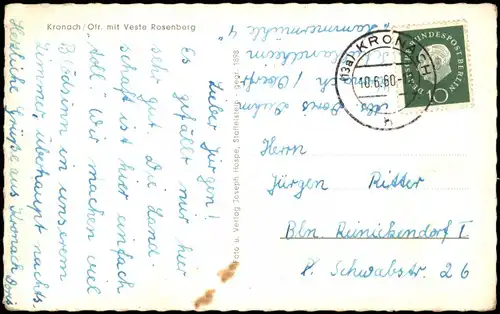 Kronach/Ofr. mit Veste Rosenberg
Lieber Jürgen!
Es gefällt mir hier
sehr gut. Die Land-
schaft ist hier einfach
"toll". Wir machen viel
Blödsinn in unserem
Zimmer, überhaupt nachts.
Herzliche Grüße aus Kronach Doris
Foto u. Verlag Joseph Hospe, Staffelstein
gegr. 1898
Doris
Kronach / Oberfr.
Landheim
"Hammermühle"
DEUTSCHE BUNDESPOST BERLIN
10
(13a) KRONACH
10.6.60
h
Herrn
Jürgen Ritter
Bln Reinickendorf 1
P. Schwabstr. 26